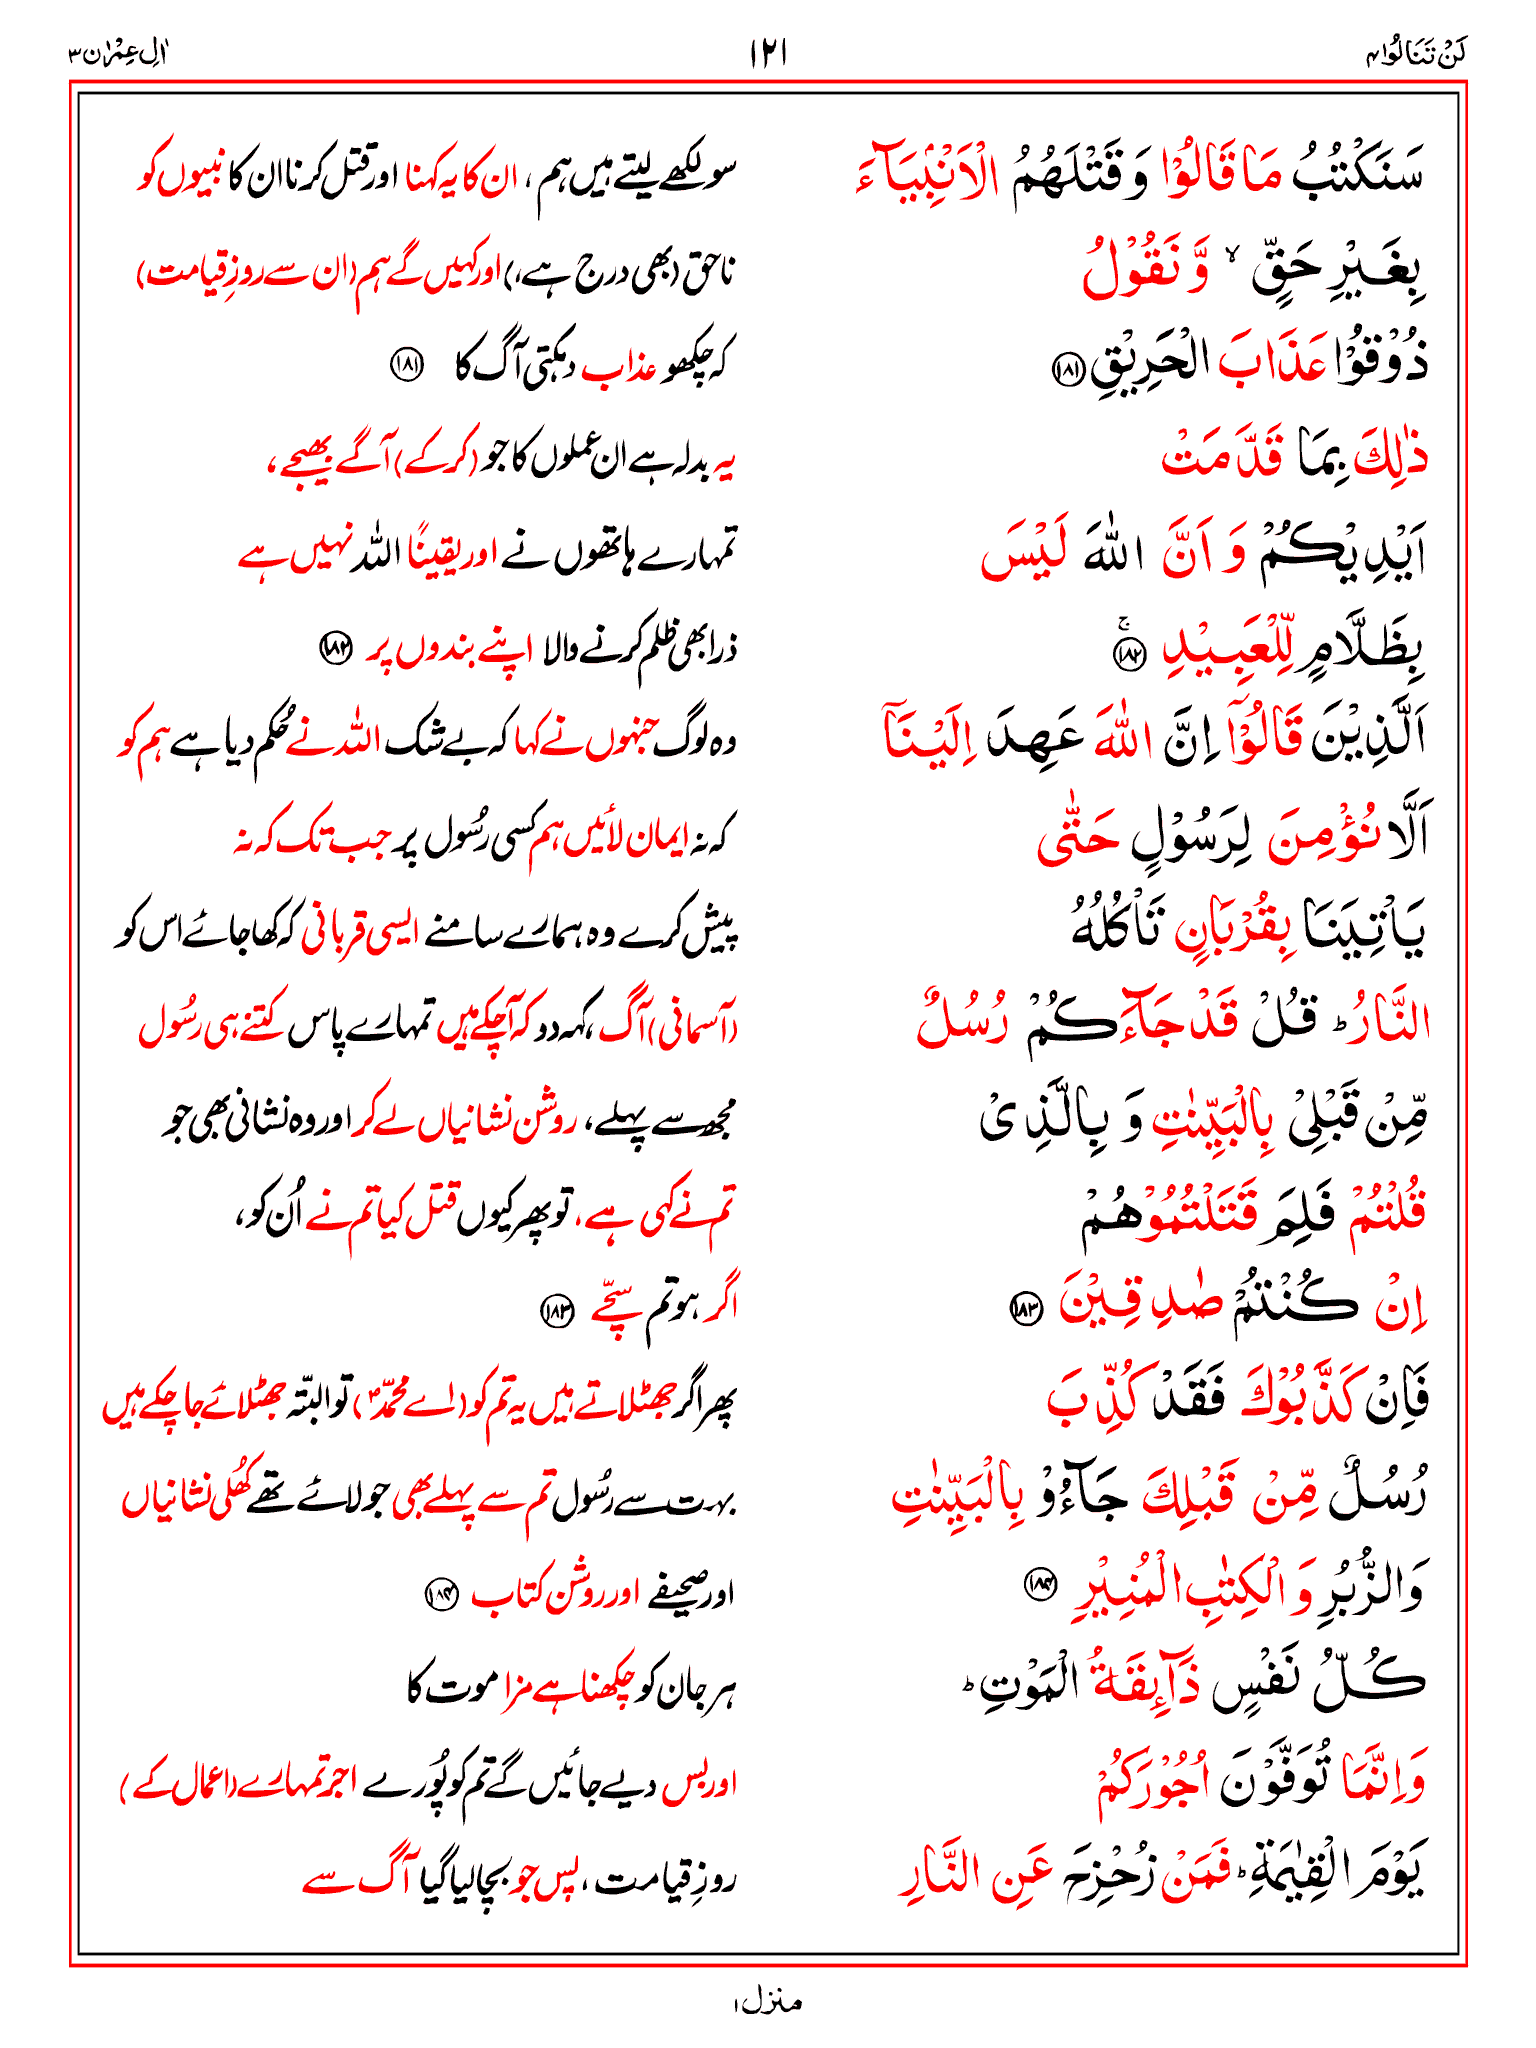 لَنْ تَنَالُوا۴ ۱۲۱ اٰلِ عِمْرٰن۳
سَنَكْتُبُ مَا قَالُوْا وَ قَتْلَهُمُ الْاَنْۢبِيَآءَ سو لکھے لیتے ہیں ہم، ان کا یہ کہنا اور قتل کرنا ان کا نبیوں کو
بِغَيْرِ حَقٍّ ۙ وَّ نَقُوْلُ ناحق (بھی درج ہے،) اور کہیں گے ہم (ان سے روزِ قیامت)
ذُوْقُوْا عَذَابَ الْحَرِيْقِ ۱۸۱ کہ چکھو عذاب دہکتی آگ کا ۱۸۱
ذٰلِكَ بِمَا قَدَّمَتْ یہ بدلہ ہے ان عملوں کا جو (کر کے) آگے بھیجے،
اَيْدِيْكُمْ وَ اَنَّ اللّٰهَ لَيْسَ تمہارے ہاتھوں نے اور یقینًا اللہ نہیں ہے
بِظَلَّامٍ لِّلْعَبِيْدِ ۚ ۱۸۲ ذرا بھی ظلم کرنے والا اپنے بندوں پر ۱۸۲
اَلَّذِيْنَ قَالُوْۤا اِنَّ اللّٰهَ عَهِدَ اِلَيْنَاۤ وہ لوگ جنہوں نے کہا کہ بے شک اللہ نے حُکم دیا ہے ہم کو
اَلَّا نُؤْمِنَ لِرَسُوْلٍ حَتّٰى کہ نہ ایمان لائیں ہم کسی رسُول پر جب تک کہ نہ
يَاْتِيَنَا بِقُرْبَانٍ تَاْكُلُهُ پیش کرے وہ ہمارے سامنے ایسی قربانی کہ کھا جائے اس کو
النَّارُ ؕ قُلْ قَدْ جَآءَكُمْ رُسُلٌ (آسمانی) آگ، کہہ دو کہ آچکے ہیں تمہارے پاس کتنے ہی رسُول
مِّنْ قَبْلِىْ بِالْبَيِّنٰتِ وَ بِالَّذِىْ مجھ سے پہلے، روشن نشانیاں لے کر اور وہ نشانی بھی جو
قُلْتُمْ فَلِمَ قَتَلْتُمُوْهُمْ تم نے کہی ہے، تو پھر کیوں قتل کیا تم نے اُن کو،
اِنْ كُنْتُمْ صٰدِقِيْنَ ۱۸۳ اگر ہو تم سچّے ۱۸۳
فَاِنْ كَذَّبُوْكَ فَقَدْ كُذِّبَ پھر اگر جھٹلاتے ہیں یہ تم کو (اے محمّدؐ) تو البتّہ جھٹلائے جا چکے ہیں
رُسُلٌ مِّنْ قَبْلِكَ جَآءُوْ بِالْبَيِّنٰتِ بہت سے رسُول تم سے پہلے بھی جو لائے تھے کھُلی نشانیاں
وَالزُّبُرِ وَ الْكِتٰبِ الْمُنِيْرِ ۱۸۴ اور صحیفے اور روشن کتاب ۱۸۴
كُلُّ نَفْسٍ ذَآئِقَةُ الْمَوْتِ ؕ ہر جان کو چکھنا ہے مزا موت کا
وَاِنَّمَا تُوَفَّوْنَ اُجُوْرَكُمْ اور بس دیے جائیں گے تم کو پُورے اجر تمہارے (اعمال کے)
يَوْمَ الْقِيٰمَةِ ؕ فَمَنْ زُحْزِحَ عَنِ النَّارِ روزِ قیامت، پس جو بچا لیا گیا آگ سے
منزل۱